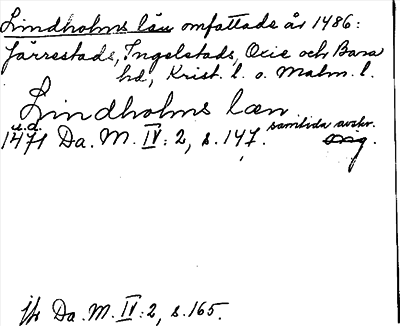 Lindholms län omfattade år 1486:
Järrestads, Ingelstads, Oxie och Bara
hd, Krist. l. o. Malm. l.
Lindholms læn
u.d.
1471 Da. M. IV: 2, s. 147. samtida avskr.
orig.
jfr Da. M. IV: 2, s. 165.